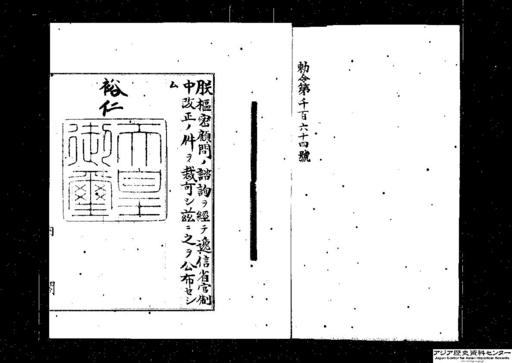 勅令第千百六十四號
朕樞密顧問ノ諮詢ヲ經テ遞信省官制
中改正ノ件ヲ裁可シ茲ニ之ヲ公布セシ
ム
裕仁
天皇
御璽
内
閣
アジア歴史資料センター
Japan Center for Asian Historical Records